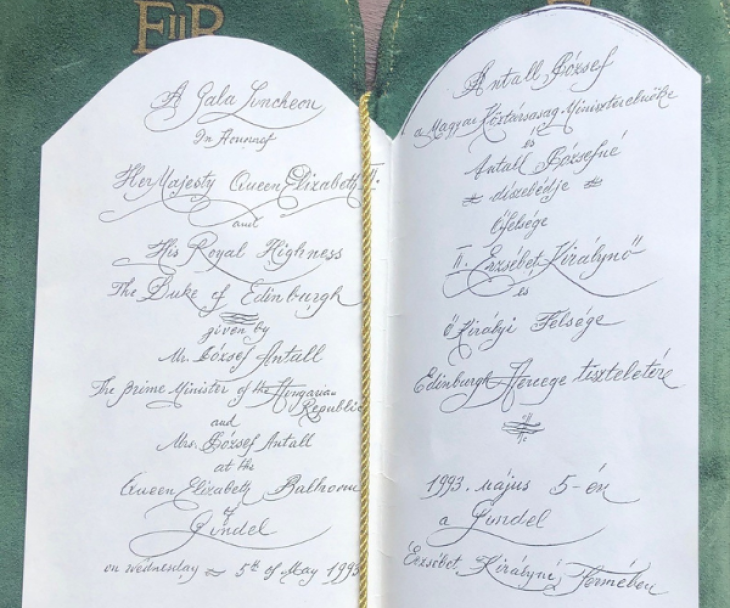 EIIR
A Gala Luncheon
In Honour of
Her Majesty Queen Elizabeth II.
and
His Royal Highness
The Duke of Edinburgh
given by
Mr. József Antall
The Prime Minister of the Hungarian
Republic
and
Mrs. József Antall
at the
Queen Elizabeth Ballroom
of
Gundel
on Wednesday 5th of May 1993
Antall József
a Magyar Köztársaság Miniszterelnöke
és
Antall Józsefné
díszebédje
Őfelsége
II. Erzsébet Királynő
és
Ő Királyi Felsége
Edinburgh Hercege tiszteletére
1993. május 5-én
a Gundel
Erzsébet Királyné Termében